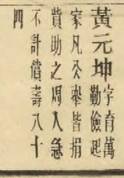 黃元坤字育萬
勤儉起
家凡公舉皆捐
貲助之周人急
不計償壽八十
四